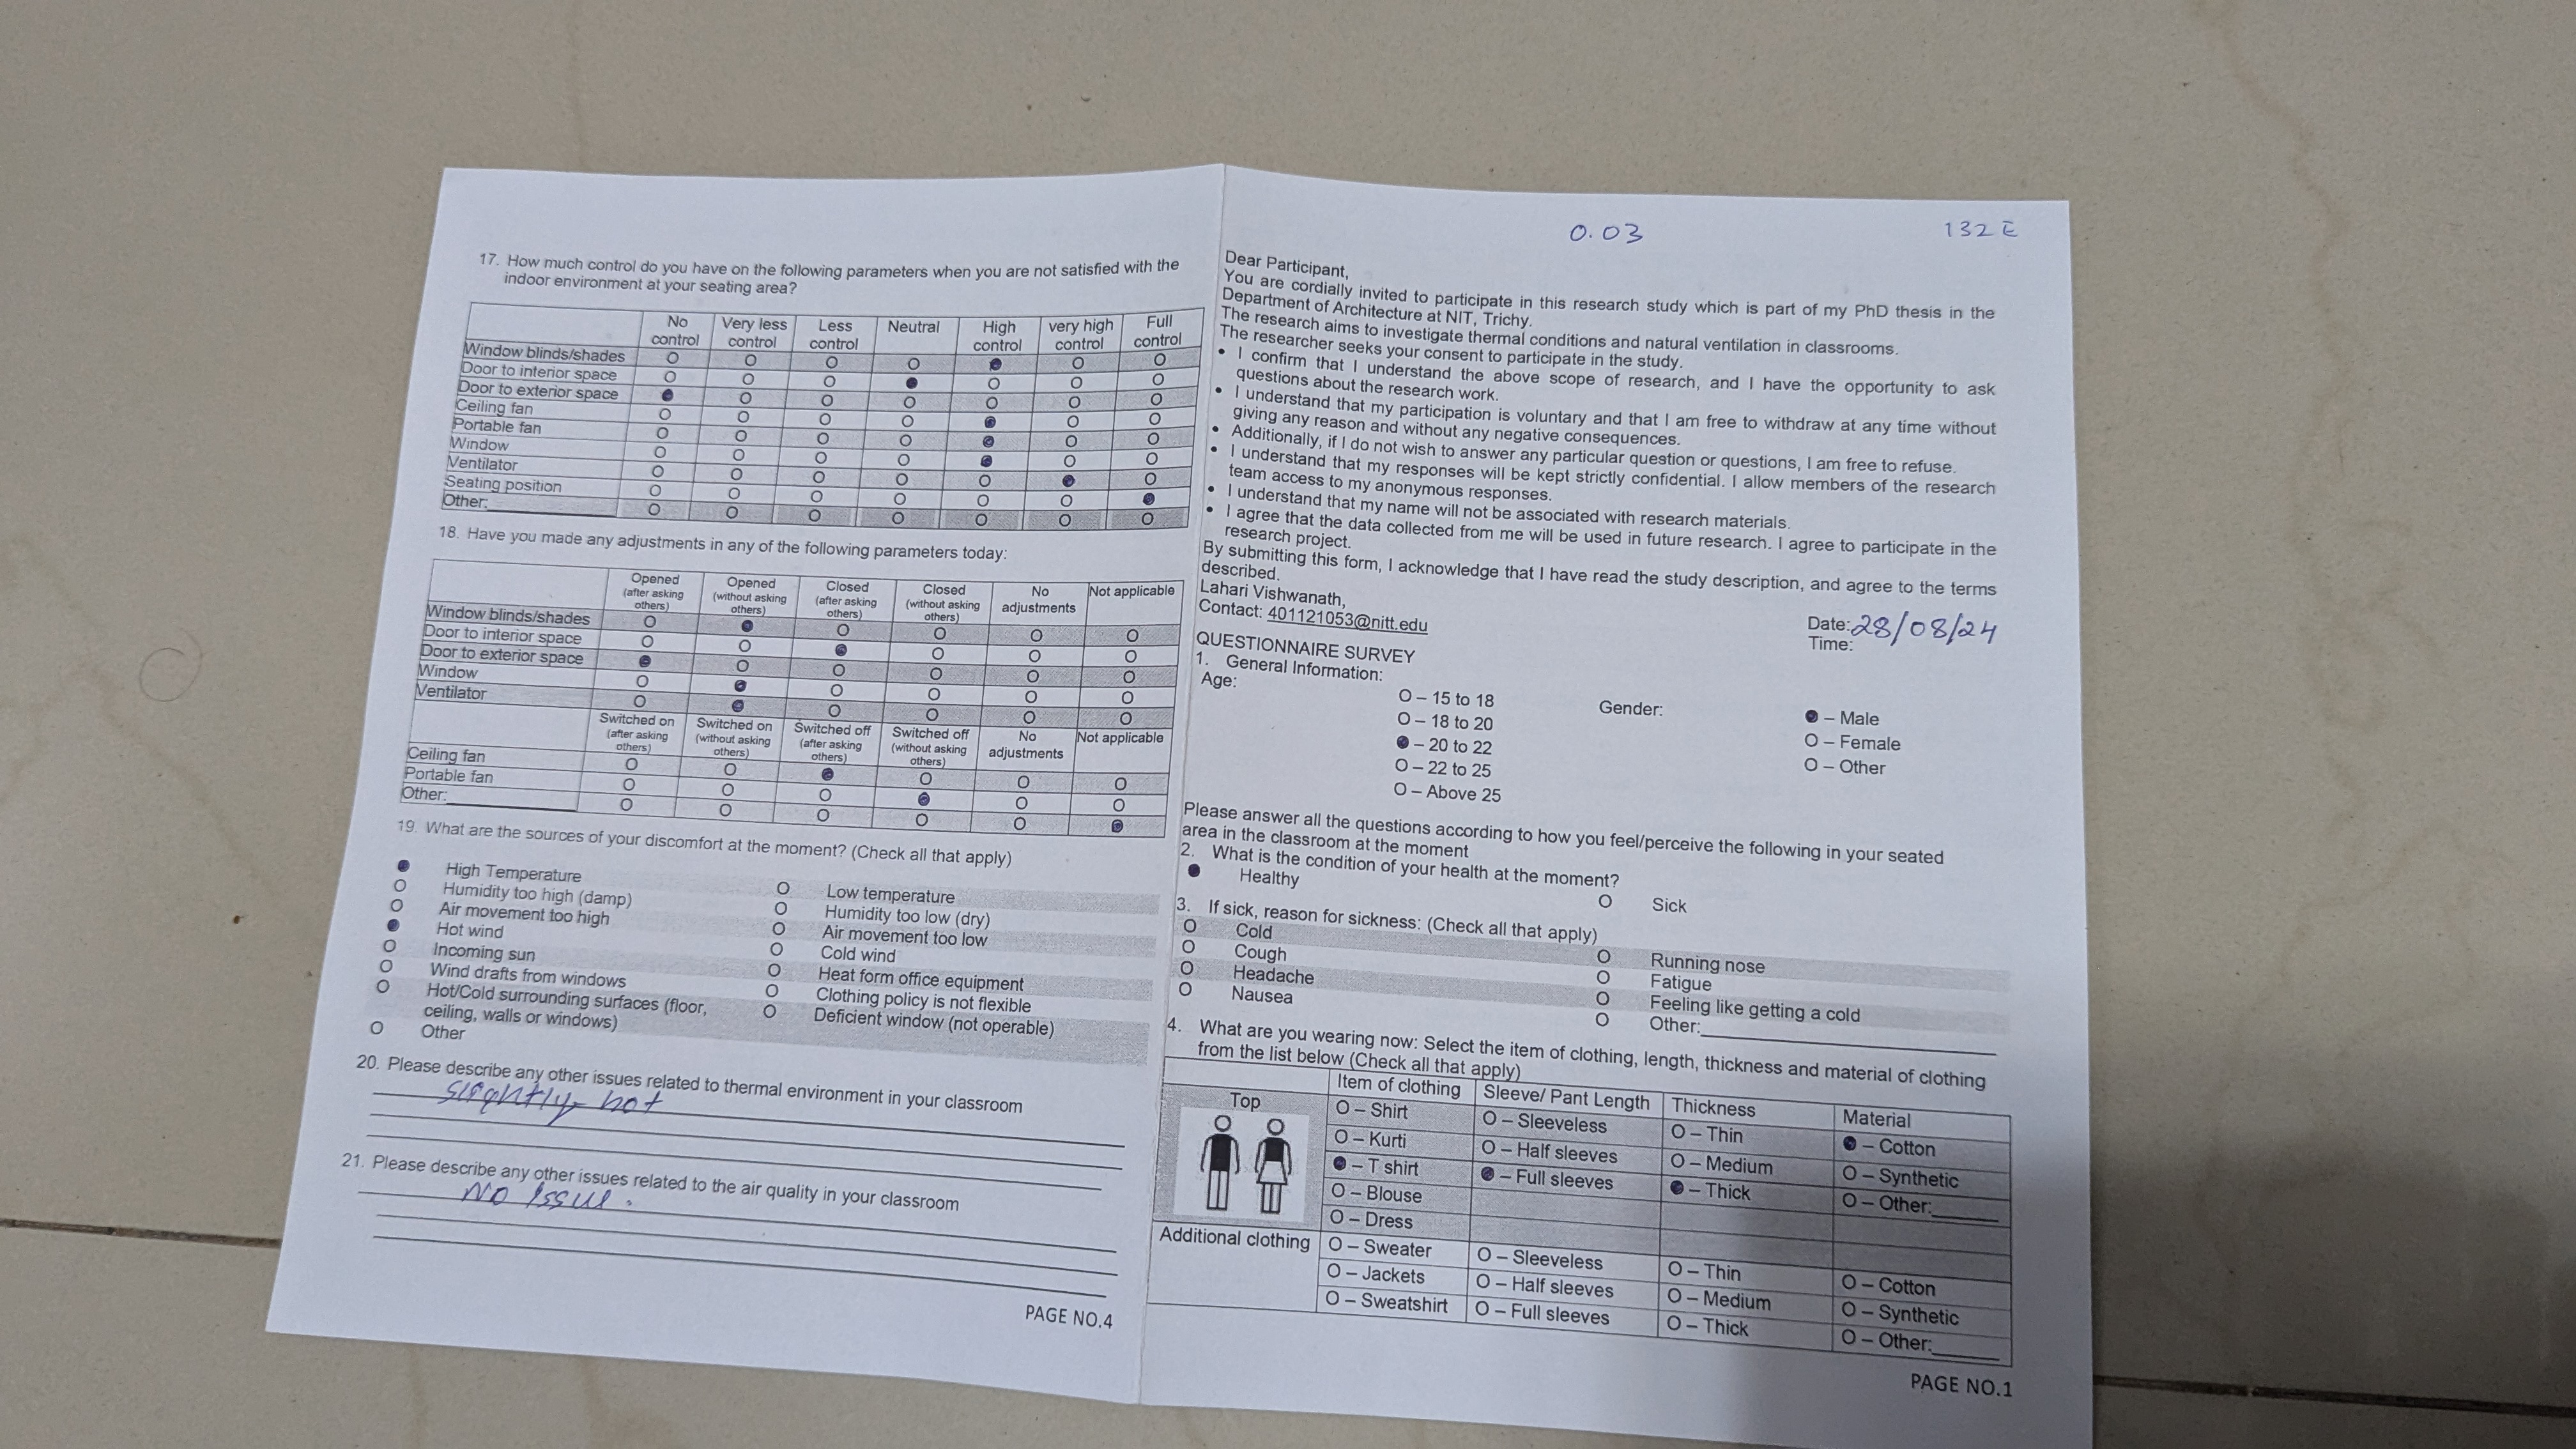 17. How much control do you have on the following parameters when you are not satisfied with the
indoor environment at your seating area?
No control Very less control Less control Neutral High control very high control Full control
Window blinds/shades O O O O ● O O
Door to interior space O O O ● O O O
Door to exterior space ● O O O O O O
Ceiling fan O O O O ● O O
Portable fan O O O O ● O O
Window O O O O ● O O
Ventilator O O O O O ● O
Seating position O O O O O O ●
Other: O O O O O O O
18. Have you made any adjustments in any of the following parameters today:
Opened (after asking others) Opened (without asking others) Closed (after asking others) Closed (without asking others) No adjustments Not applicable
Window blinds/shades O ● O O O O
Door to interior space O O ● O O O
Door to exterior space ● O O O O O
Window O ● O O O O
Ventilator O ● O O O O
Switched on (after asking others) Switched on (without asking others) Switched off (after asking others) Switched off (without asking others) No adjustments Not applicable
Ceiling fan O O ● O O O
Portable fan O O O ● O O
Other: O O O O O ●
19. What are the sources of your discomfort at the moment? (Check all that apply)
● High Temperature O Low temperature
O Humidity too high (damp) O Humidity too low (dry)
O Air movement too high O Air movement too low
● Hot wind O Cold wind
O Incoming sun O Heat form office equipment
O Wind drafts from windows O Clothing policy is not flexible
O Hot/Cold surrounding surfaces (floor, O Deficient window (not operable)
ceiling, walls or windows)
O Other
20. Please describe any other issues related to thermal environment in your classroom
slightly hot
21. Please describe any other issues related to the air quality in your classroom
No issue.
PAGE NO.4
0.03 132 E
Dear Participant,
You are cordially invited to participate in this research study which is part of my PhD thesis in the
Department of Architecture at NIT, Trichy.
The research aims to investigate thermal conditions and natural ventilation in classrooms.
The researcher seeks your consent to participate in the study.
• I confirm that I understand the above scope of research, and I have the opportunity to ask
questions about the research work.
• I understand that my participation is voluntary and that I am free to withdraw at any time without
giving any reason and without any negative consequences.
• Additionally, if I do not wish to answer any particular question or questions, I am free to refuse.
• I understand that my responses will be kept strictly confidential. I allow members of the research
team access to my anonymous responses.
• I understand that my name will not be associated with research materials.
• I agree that the data collected from me will be used in future research. I agree to participate in the
research project.
By submitting this form, I acknowledge that I have read the study description, and agree to the terms
described.
Lahari Vishwanath,
Contact: 401121053@nitt.edu
Date: 28/08/24
Time:
QUESTIONNAIRE SURVEY
1. General Information:
Age: Gender:
O – 15 to 18 ● – Male
O – 18 to 20 O – Female
● – 20 to 22 O – Other
O – 22 to 25
O – Above 25
Please answer all the questions according to how you feel/perceive the following in your seated
area in the classroom at the moment
2. What is the condition of your health at the moment?
● Healthy O Sick
3. If sick, reason for sickness: (Check all that apply)
O Cold O Running nose
O Cough O Fatigue
O Headache O Feeling like getting a cold
O Nausea O Other:
4. What are you wearing now: Select the item of clothing, length, thickness and material of clothing
from the list below (Check all that apply)
Item of clothing Sleeve/ Pant Length Thickness Material
Top
O – Shirt O – Sleeveless O – Thin ● – Cotton
O – Kurti O – Half sleeves O – Medium O – Synthetic
● – T shirt ● – Full sleeves ● – Thick O – Other:
O – Blouse
O – Dress
Additional clothing
O – Sweater O – Sleeveless O – Thin O – Cotton
O – Jackets O – Half sleeves O – Medium O – Synthetic
O – Sweatshirt O – Full sleeves O – Thick O – Other:
PAGE NO.1